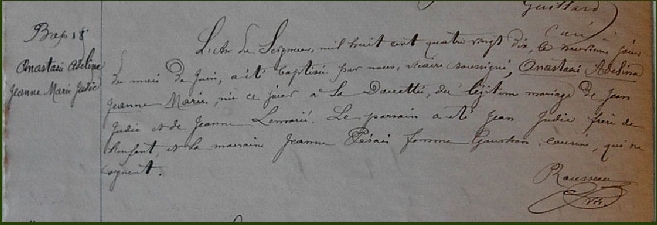 Guittard
Curé
Bap. 18
Anastasie Adelina
Jeanne Marie Judic
L'an du Seigneur, mil huit cent quatre vingt dix, le neuvième jour
du mois de Juin, a été baptisée par nous, vicaire soussigné, Anastasie Adelina
Jeanne Marie, née ce jour à la Daucette, du légitime mariage de Jean
Judic et de Jeanne Lemarié. Le parrain a été Jean Judic frère de
l'enfant, et la marraine Jeanne femme cousine, qui ne
signent.
Rousseau
vic.